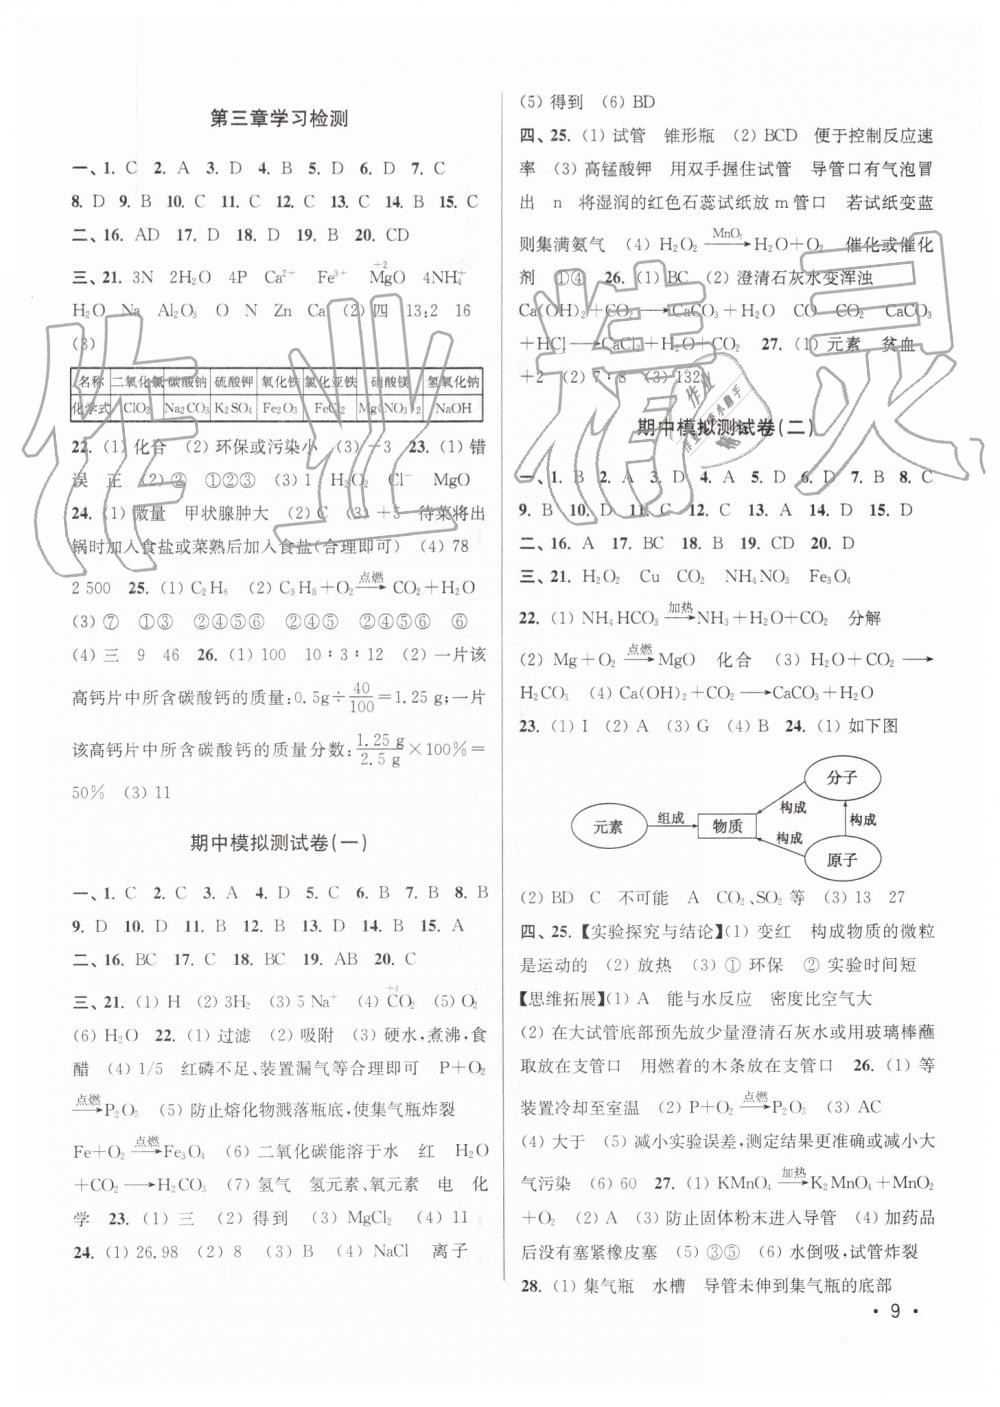 第三章学习检测
一、1. C 2. A 3. D 4. B 5. D 6. D 7. C
8. D 9. B 10. C 11. C 12. C 13. C 14. B 15. C
二、16. AD 17. D 18. D 19. B 20. CD
三、21. 3N 2H₂O 4P Ca²⁺ Fe³⁺ +2 MgO 4NH₄⁺
H₂O Na Al₂O₃ O N Zn Ca (2) 四 13:2 16
(3)
名称 二氧化氯 碳酸钠 硫酸钾 氧化铁 氯化亚铁 硝酸镁 氢氧化钠
化学式 ClO₂ Na₂CO₃ K₂SO₄ Fe₂O₃ FeCl₂ Mg(NO₃)₂ NaOH
22. (1) 化合 (2) 环保或污染小 (3) －3 23. (1) 错
误 正 (2) ② ①②③ (3) 1 H₂O₂ Cl⁻ MgO
24. (1) 微量 甲状腺肿大 (2) C (3) ＋5 待菜将出
锅时加入食盐或菜熟后加入食盐(合理即可) (4) 78
2 500 25. (1) C₂H₆ (2) C₃H₈＋O₂ 点燃→ CO₂＋H₂O
(3) ⑦ ①③ ②④⑤⑥ ②④⑤⑥ ②④⑤⑥ ⑥
(4) 三 9 46 26. (1) 100 10∶3∶12 (2) 一片该
高钙片中所含碳酸钙的质量:0.5g÷40/100＝1.25 g;一片
该高钙片中所含碳酸钙的质量分数:1.25 g/2.5 g×100%＝
50% (3) 11
期中模拟测试卷(一)
一、1. C 2. C 3. A 4. D 5. C 6. B 7. B 8. B
9. D 10. D 11. B 12. B 13. D 14. B 15. A
二、16. BC 17. C 18. BC 19. AB 20. C
三、21. (1) H (2) 3H₂ (3) 5 Na⁺ (4) +4 CO₂ (5) O₂
(6) H₂O 22. (1) 过滤 (2) 吸附 (3) 硬水,煮沸,食
醋 (4) 1/5 红磷不足、装置漏气等合理即可 P＋O₂
点燃→P₂O₅ (5) 防止熔化物溅落瓶底,使集气瓶炸裂
Fe＋O₂ 点燃→Fe₃O₄ (6) 二氧化碳能溶于水 红 H₂O
＋CO₂→H₂CO₃ (7) 氢气 氢元素、氧元素 电 化
学 23. (1) 三 (2) 得到 (3) MgCl₂ (4) 11
24. (1) 26.98 (2) 8 (3) B (4) NaCl 离子
(5) 得到 (6) BD
四、25. (1) 试管 锥形瓶 (2) BCD 便于控制反应速
率 (3) 高锰酸钾 用双手握住试管 导管口有气泡冒
出 n 将湿润的红色石蕊试纸放 m 管口 若试纸变蓝
则集满氨气 (4) H₂O₂ MnO₂→H₂O＋O₂ 催化或催化
剂 ①④ 26. (1) BC (2) 澄清石灰水变浑浊
Ca(OH)₂＋CO₂→CaCO₃＋H₂O CO CO₂ CaCO₃
＋HCl→CaCl₂＋H₂O＋CO₂ 27. (1) 元素 贫血
＋2 (2) 7∶8 (3) 132
期中模拟测试卷(二)
一、1. B 2. A 3. D 4. A 5. D 6. D 7. B 8. C
9. B 10. D 11. C 12. C 13. A 14. D 15. D
二、16. A 17. BC 18. B 19. CD 20. D
三、21. H₂O₂ Cu CO₂ NH₄NO₃ Fe₃O₄
22. (1) NH₄HCO₃ 加热→NH₃＋H₂O＋CO₂ 分解
(2) Mg＋O₂ 点燃→MgO 化合 (3) H₂O＋CO₂→
H₂CO₃ (4) Ca(OH)₂＋CO₂→CaCO₃＋H₂O
23. (1) I (2) A (3) G (4) B 24. (1) 如下图
分子
构成
元素 组成 物质 构成
构成
原子
(2) BD C 不可能 A CO₂、SO₂ 等 (3) 13 27
四、25.【实验探究与结论】(1) 变红 构成物质的微粒
是运动的 (2) 放热 (3) ① 环保 ② 实验时间短
【思维拓展】(1) A 能与水反应 密度比空气大
(2) 在大试管底部预先放少量澄清石灰水或用玻璃棒蘸
取放在支管口 用燃着的木条放在支管口 26. (1) 等
装置冷却至室温 (2) P＋O₂ 点燃→P₂O₅ (3) AC
(4) 大于 (5) 减小实验误差,测定结果更准确或减小大
气污染 (6) 60 27. (1) KMnO₄ 加热→K₂MnO₄＋MnO₂
＋O₂ (2) A (3) 防止固体粉末进入导管 (4) 加药品
后没有塞紧橡皮塞 (5) ③⑤ (6) 水倒吸,试管炸裂
28. (1) 集气瓶 水槽 导管未伸到集气瓶的底部
• 9 •
作业精灵